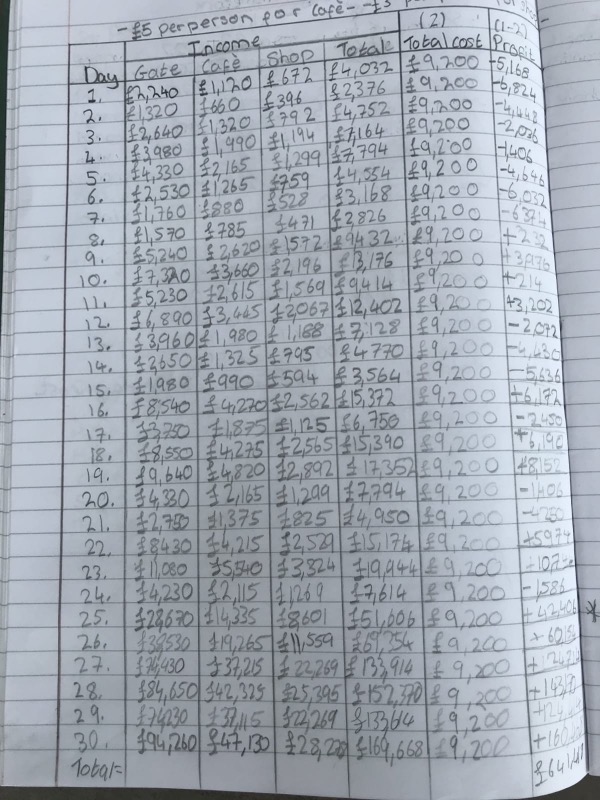 -£5 per person for café - -£3
Income (2) (1-2)
Day Gate Café Shop Total Total cost Profit
1. £2,240 £1,120 £672 £4,032 £9,200 -5,168
2. £1,320 £660 £396 £2,376 £9,200 -6,824
3. £2,640 £1,320 £792 £4,752 £9,200 -4,448
4. £3,980 £1,990 £1,194 £7,164 £9,200 -2,036
5. £4,330 £2,165 £1,299 £7,794 £9,200 -1,406
6. £2,530 £1,265 £759 £4,554 £9,200 -4,646
7. £1,760 £880 £528 £3,168 £9,200 -6,032
8. £1,570 £785 £471 £2,826 £9,200 -6,374
9. £5,240 £2,620 £1572 £9432 £9,200 +232
10. £7,320 £3,660 £2,196 £13,176 £9,200 +3,976
11. £5,230 £2,615 £1,569 £9414 £9,200 +214
12. £6,890 £3,445 £2,067 £12,402 £9,200 +3,202
13. £3960 £1,980 £1,188 £7,128 £9,200 -2,072
14. £2,650 £1,325 £795 £4770 £9,200 -4,430
15. £1,980 £990 £594 £3,564 £9,200 -5,636
16. £8,540 £4,270 £2,562 £15,372 £9,200 +6,172
17. £3,750 £1,875 £1,125 £6,750 £9,200 -2450
18. £8,550 £4,275 £2,565 £15,390 £9,200 +6,190
19. £9,640 £4,820 £2,892 £17,352 £9,200 +8,152
20. £4,330 £2,165 £1,299 £7,794 £9,200 -1,406
21. £2,750 £1,375 £825 £4,950 £9,200 -4250
22. £8430 £4,215 £2,529 £15,174 £9,200 +5974
23. £11,080 £5,540 £3,324 £19,944 £9,200
24. £4,230 £2,115 £1269 £7,614 £9,200 -1,586
25. £28,670 £14,335 £8601 £51,606 £9,200 +42,406 *
26. £38530 £19,265 £11,559 £69,354 £9,200
27. £74430 £37,215 £22,269 £133,914 £9,200
28. £84,650 £42,325 £25,395 £152,370 £9,200
29. £74230 £37,115 £22,269 £133614 £9,200
30. £94,260 £47,130 £169,668 £9,200
Total=